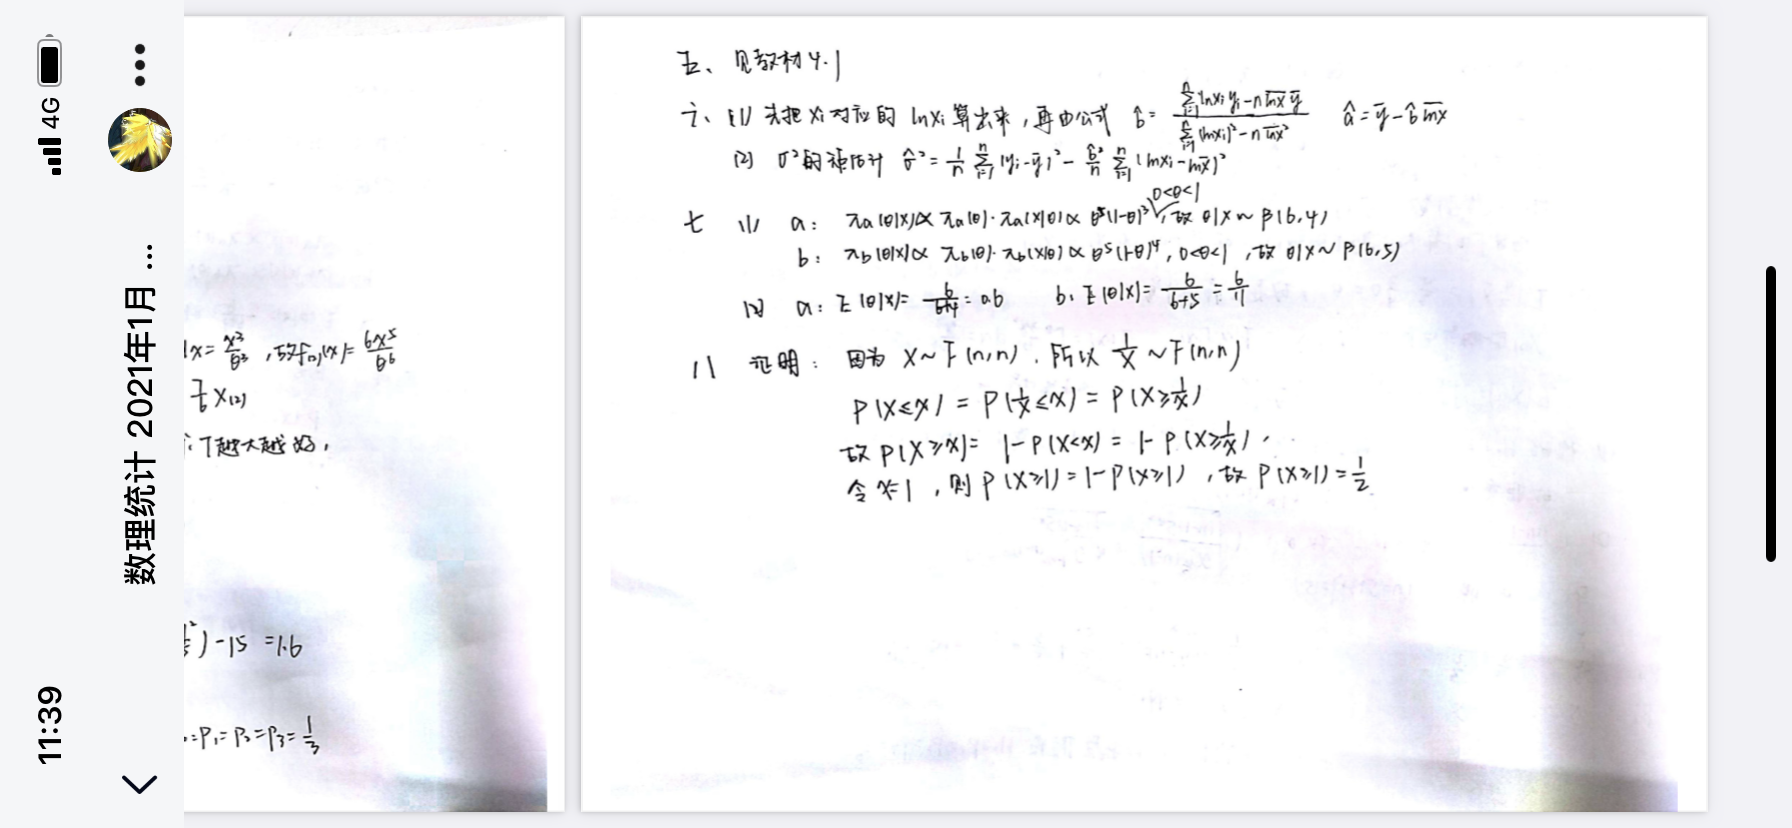 11:39
4G
数理统计 2021年1月 ...
x = x³/θ³ ,故f₍ₙ₎(x)= 6x⁵/θ⁶
7/6 X₍₂₎
个T越大越好,
) -15 =1.6
=P₁=P₂=P₃=1/3
五、见教材4.1
六、(1) 先把xᵢ对应的 lnxᵢ 算出来,再由公式 b̂= (∑ᵢ₌₁ⁿ lnxᵢ yᵢ - n l̅n̅x̅ ȳ)/(∑ᵢ₌₁ⁿ (lnxᵢ)² - n l̅n̅x̅²) â=ȳ-b̂ l̅n̅x̅
(2) σ²的矩估计 σ̂²= 1/n ∑ᵢ₌₁ⁿ (yᵢ-ȳ)² - b̂²/n ∑ᵢ₌₁ⁿ (lnxᵢ-l̅n̅x̅)²
七 (1) a: πa(θ|x)∝ πa(θ)·πa(x|θ)∝ θ⁵(1-θ)³, 0<θ<1 故 θ|x ~ β(6,4)
b: πb(θ|x)∝ πb(θ)·πb(x|θ)∝ θ⁵(1-θ)⁴, 0<θ<1 ,故 θ|x ~ β(6,5)
(2) a: E(θ|x)= 6/(6+4) = 0.6 b: E(θ|x)= 6/(6+5) = 6/11
八 证明: 因为 X~F(n,n). 所以 1/X ~F(n,n)
P(X≤x) = P(1/X≤x) = P(X≥1/x)
故 P(X≥x)= 1-P(X<x) = 1- P(X≥1/x),
令x=1 ,则 P(X≥1)=1-P(X≥1) ,故 P(X≥1)=1/2